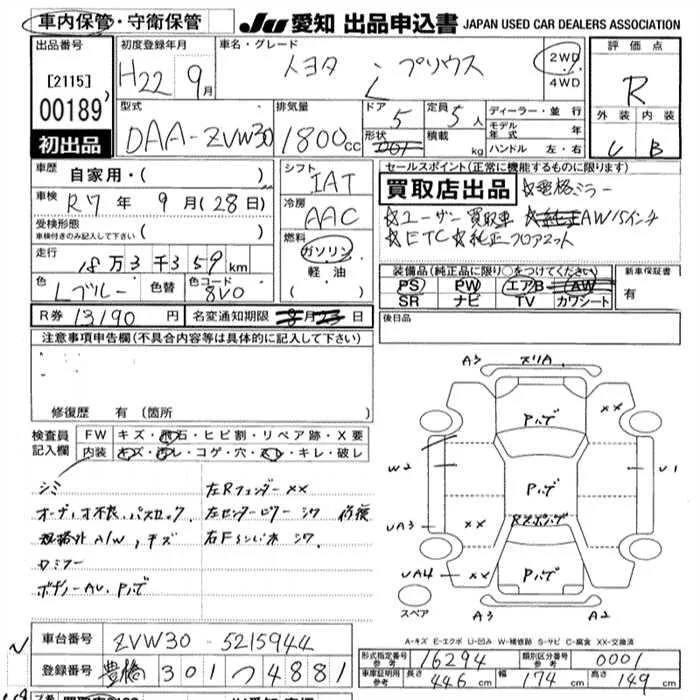 車内保管・守衛保管
JU 愛知 出品申込書 JAPAN USED CAR DEALERS ASSOCIATION
出品番号 初度登録年月 車名・グレード 評価点
[2115] H22 9月 トヨタ プリウス 2WD 4WD R
00189 型式 排気量 ドア 定員 ディーラー・並行 外装 内装
初出品 DAA-ZVW30 1800cc 5 5人 モデル年式 年 C B
形状 積載 kg ハンドル 左・右
車歴 自家用・( ) シフト IAT セールスポイント(正常に機能するものに限ります)
車検 R7年 9月(28日) 冷房 AAC 買取店出品 ☆電格ミラー
受検形態 ( ) ☆ユーザー買取車 ☆純正AW15インチ
車検付きのみ記入して下さい 燃料 ☆ETC☆純正フロアマット
走行 18万3千359km ガソリン 装備品(純正品に限り○をつけてください) 新車保証書
色 Lブルー 色替 色コード 8V0 軽油 ( ) PS PW エアB AW 有
SR ナビ TV カワシート
R券 13190円 名変通知期限 8月23日 後日品
注意事項申告欄(不具合内容等は具体的に記入して下さい)
修復歴 有(箇所 )
検査員記入欄 FW キズ・飛石・ヒビ割・リペア跡・X要
内装 キズ・汚レ・コゲ・穴・スレ・キレ・破レ
シミ 左Rフェンダーxx
オーディオ不良、パスロック、 左センターピラー シワ 修復
規格外A/W、キズ
ボデーAU、Pハゲ
A3 スリA
Pハゲ xx
W2 Pハゲ U1
UA3 xx
UA4 xx Pハゲ
スペア A3 A2
A-キズ E-エクボ U-凹み W-補修跡 S-サビ C-腐食 XX-交換済
車台番号 ZVW30-5215944
登録番号 豊橋 301 つ 4881
形式指定番号 参考 16294 類別区分番号 参考 0001
車庫証明用 参考 長さ 446cm 幅 174cm 高さ 149cm